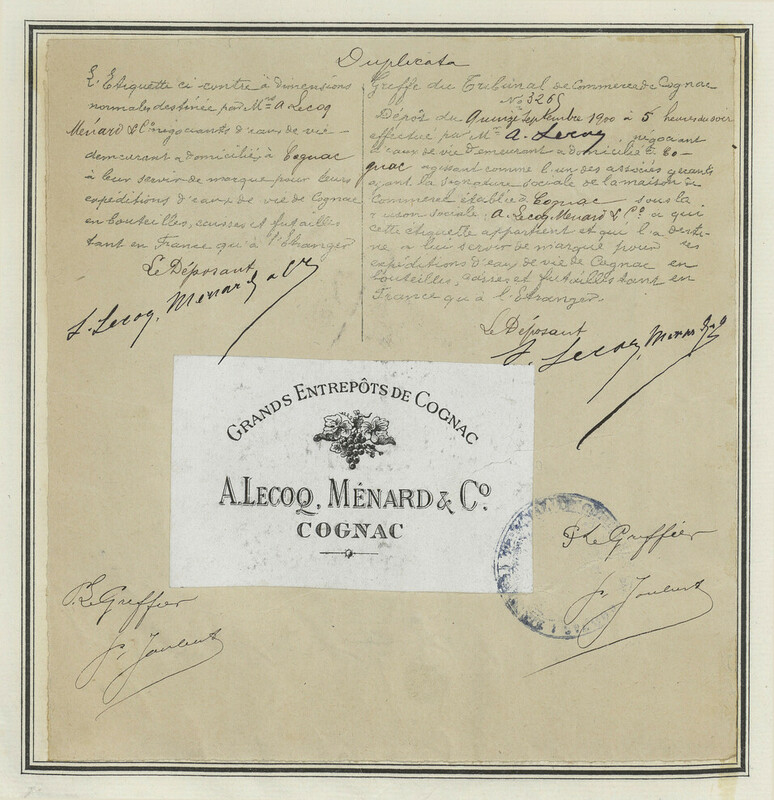 Duplicata
L'Etiquette ci-contre à dimensions
normales destinée par Mr A. Lecoq
Ménard & Co négociants d'eaux de vie
demeurant & domiciliés à Cognac
à leur servir de marque pour leurs
expéditions d'eaux de vie de Cognac
en bouteilles, caisses et futailles
tant en France qu'à l'Etranger
Le Déposant
A. Lecoq, Ménard & Co
Greffe du Tribunal de Commerce de Cognac
No 3265
Dépôt du Quinze Septembre 1900 à 5 heures du soir
effectué par Mr A. Lecoq, négociant
d'eaux de vie demeurant & domicilié à Co-
gnac agissant comme l'un des associés gérants
ayant la signature sociale de la maison de
Commerce établie à Cognac sous la
raison sociale: A. Lecoq, Ménard & Co à qui
cette étiquette appartient et qui l'a desti-
née à leur servir de marque pour ses
expéditions d'eaux de vie de Cognac en
bouteilles, caisses et futailles tant en
France qu'à l'Etranger.
Le Déposant
A. Lecoq, Ménard & Co
GRANDS ENTREPÔTS DE COGNAC
A. LECOQ, MÉNARD & Co.
COGNAC
P. Le Greffier
P. Le Greffier